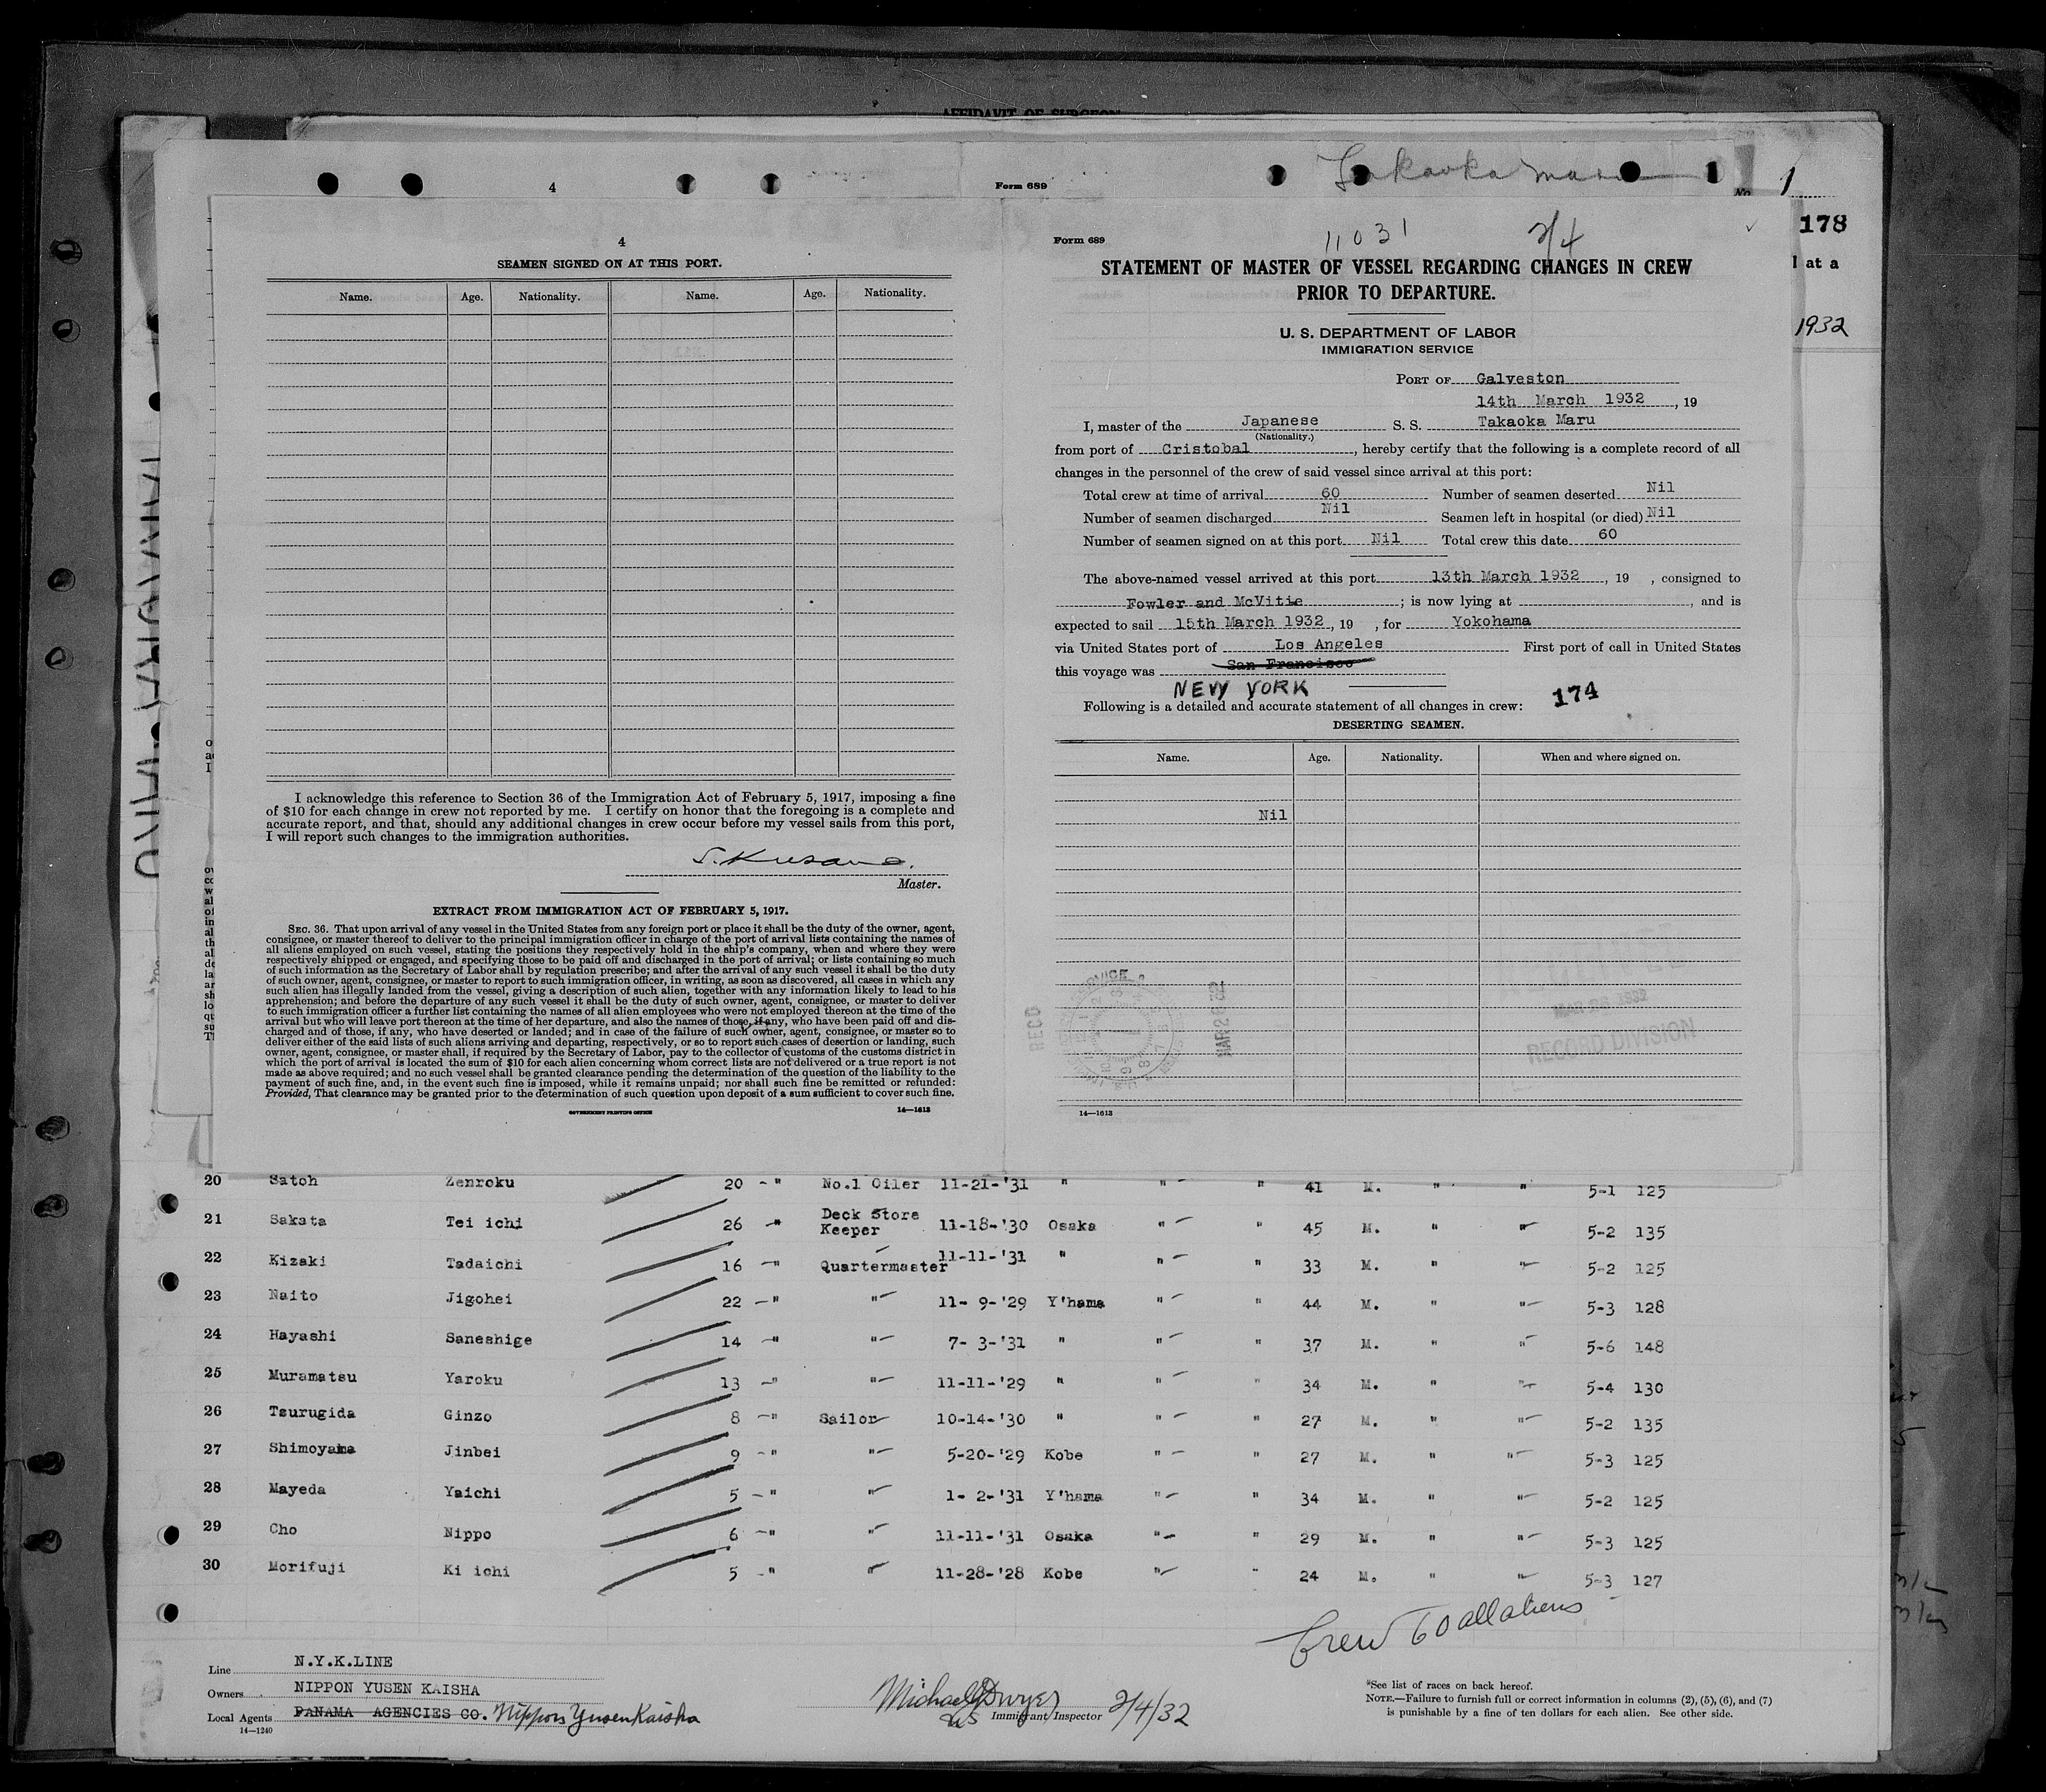 AFFIDAVIT OF SURGEON
4
Form 689
Takaoka Maru
No. 1
178
l at a
1932
4
SEAMEN SIGNED ON AT THIS PORT.
Name. Age. Nationality. Name. Age. Nationality.
I acknowledge this reference to Section 36 of the Immigration Act of February 5, 1917, imposing a fine
of $10 for each change in crew not reported by me. I certify on honor that the foregoing is a complete and
accurate report, and that, should any additional changes in crew occur before my vessel sails from this port,
I will report such changes to the immigration authorities.
S. Kusano.
Master.
EXTRACT FROM IMMIGRATION ACT OF FEBRUARY 5, 1917.
SEC. 36. That upon arrival of any vessel in the United States from any foreign port or place it shall be the duty of the owner, agent,
consignee, or master thereof to deliver to the principal immigration officer in charge of the port of arrival lists containing the names of
all aliens employed on such vessel, stating the positions they respectively hold in the ship's company, when and where they were
respectively shipped or engaged, and specifying those to be paid off and discharged in the port of arrival; or lists containing so much
of such information as the Secretary of Labor shall by regulation prescribe; and after the arrival of any such vessel it shall be the duty
of such owner, agent, consignee, or master to report to such immigration officer, in writing, as soon as discovered, all cases in which any
such alien has illegally landed from the vessel, giving a description of such alien, together with any information likely to lead to his
apprehension; and before the departure of any such vessel it shall be the duty of such owner, agent, consignee, or master to deliver
to such immigration officer a further list containing the names of all alien employees who were not employed thereon at the time of the
arrival but who will leave port thereon at the time of her departure, and also the names of those, if any, who have been paid off and dis-
charged and of those, if any, who have deserted or landed; and in case of the failure of such owner, agent, consignee, or master so to
deliver either of the said lists of such aliens arriving and departing, respectively, or so to report such cases of desertion or landing, such
owner, agent, consignee, or master shall, if required by the Secretary of Labor, pay to the collector of customs of the customs district in
which the port of arrival is located the sum of $10 for each alien concerning whom correct lists are not delivered or a true report is not
made as above required; and no such vessel shall be granted clearance pending the determination of the question of the liability to the
payment of such fine, and, in the event such fine is imposed, while it remains unpaid; nor shall such fine be remitted or refunded:
Provided, That clearance may be granted prior to the determination of such question upon deposit of a sum sufficient to cover such fine.
GOVERNMENT PRINTING OFFICE 14—1613
Form 689
11031 2/4
STATEMENT OF MASTER OF VESSEL REGARDING CHANGES IN CREW
PRIOR TO DEPARTURE.
U. S. DEPARTMENT OF LABOR
IMMIGRATION SERVICE
PORT OF Galveston
14th March 1932, 19
I, master of the Japanese S. S. Takaoka Maru
(Nationality.)
from port of Cristobal, hereby certify that the following is a complete record of all
changes in the personnel of the crew of said vessel since arrival at this port:
Total crew at time of arrival 60 Number of seamen deserted Nil
Number of seamen discharged Nil Seamen left in hospital (or died) Nil
Number of seamen signed on at this port Nil Total crew this date 60
The above-named vessel arrived at this port 13th March 1932, 19 , consigned to
Fowler and McVitie ; is now lying at , and is
expected to sail 15th March 1932, 19 , for Yokohama
via United States port of Los Angeles First port of call in United States
this voyage was San Francisco
NEW YORK
Following is a detailed and accurate statement of all changes in crew: 174
DESERTING SEAMEN.
Name. Age. Nationality. When and where signed on.
Nil
RECD
MAR 26 32
MAR 26 1932
RECORD DIVISION
14—1613
20 Satoh Zenroku 20 " No.1 Oiler 11-21-'31 " " " 41 M. " " 5-1 125
21 Sakata Tei ichi 26 " Deck Store Keeper 11-18-'30 Osaka " " 45 M. " " 5-2 135
22 Kizaki Tadaichi 16 " Quartermaster 11-11-'31 " " " 33 M. " " 5-2 125
23 Naito Jigohei 22 " " 11- 9-'29 Y'hama " " 44 M. " " 5-3 128
24 Hayashi Saneshige 14 " " 7- 3-'31 " " " 37 M. " " 5-6 148
25 Muramatsu Yaroku 13 " " 11-11-'29 " " " 34 M. " " 5-4 130
26 Tsurugida Ginzo 8 " Sailor 10-14-'30 " " " 27 M. " " 5-2 135
27 Shimoyama Jinbei 9 " " 5-20-'29 Kobe " " 27 M. " " 5-3 125
28 Mayeda Yaichi 5 " " 1- 2-'31 Y'hama " " 34 M. " " 5-2 125
29 Cho Nippo 6 " " 11-11-'31 Osaka " " 29 M. " " 5-3 125
30 Morifuji Ki ichi 5 " " 11-28-'28 Kobe " " 24 M. " " 5-3 127
Crew 60 all aliens
Line N.Y.K.LINE
Owners NIPPON YUSEN KAISHA
Local Agents PANAMA AGENCIES CO. Nippon Yusen Kaisha
14—1240
Michael J Dwyer
US Immigrant Inspector 2/4/32
*See list of races on back hereof.
NOTE.—Failure to furnish full or correct information in columns (2), (5), (6), and (7)
is punishable by a fine of ten dollars for each alien. See other side.